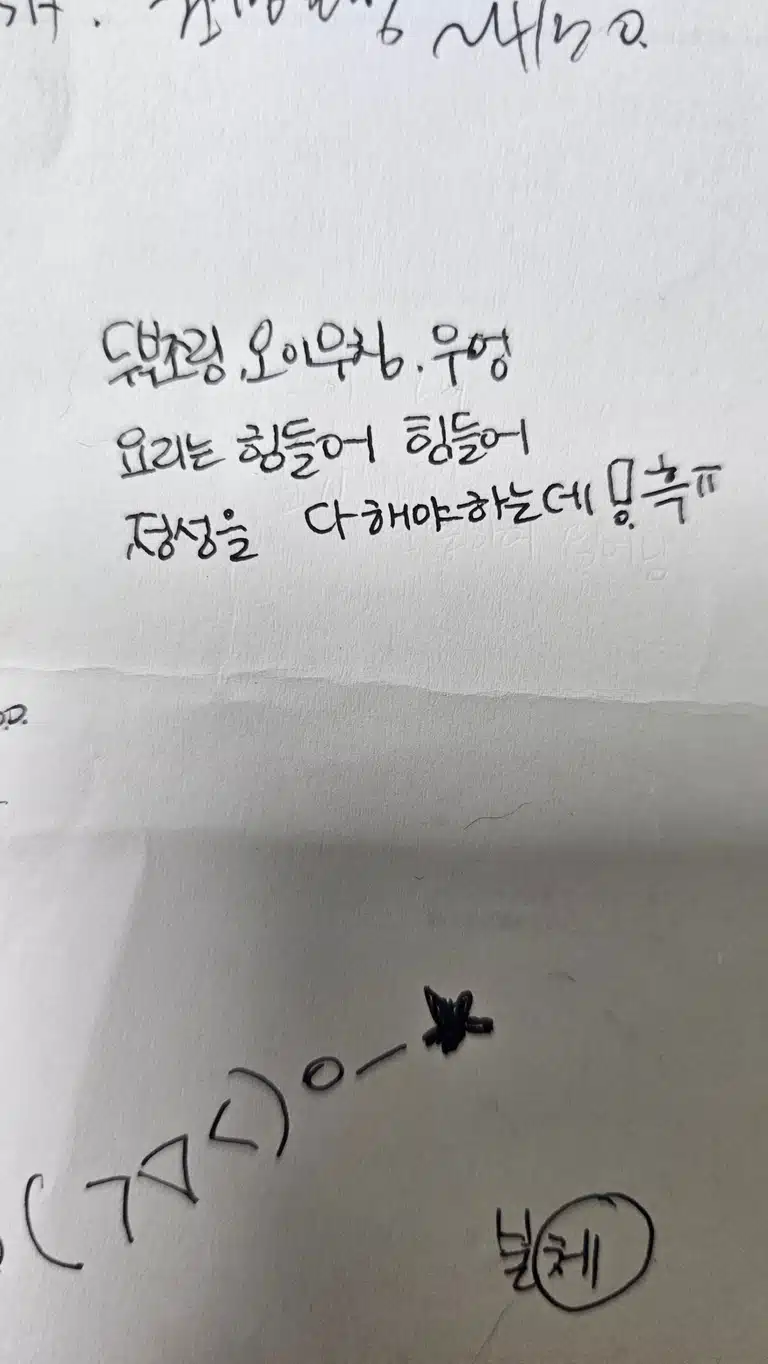 두부조림.오이무침.우엉
요리는 힘들어 힘들어
정성을 다해야하는데 흑ㅠ
(ㄱ▽<)ㅇ-★
체